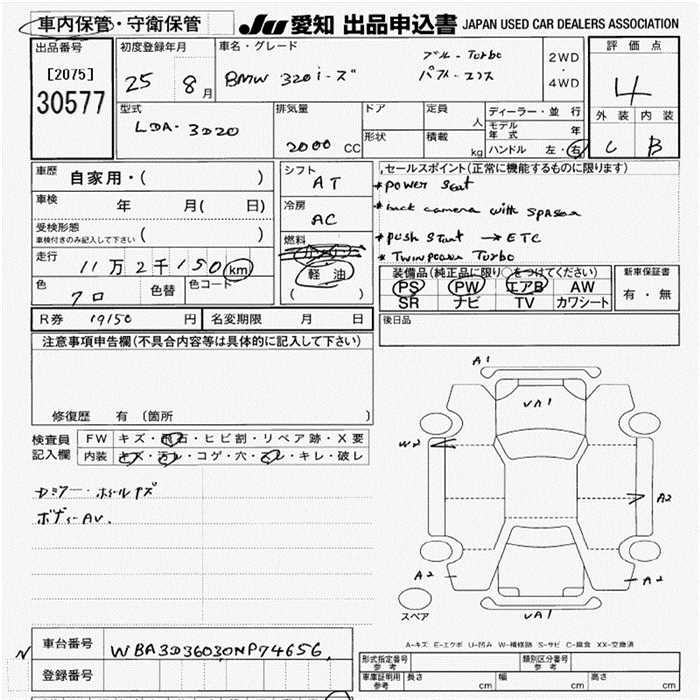 車内保管・守衛保管
JU 愛知 出品申込書 JAPAN USED CAR DEALERS ASSOCIATION
出品番号
[2075]
30577
初度登録年月
25 8月
車名・グレード
BMW 320i-ズ
ブルー-Turbo
2WD
・
4WD
評価点
4
外装 内装
C B
型式
LDA-3D20
排気量
2000 CC
ドア
定員
人
形状
積載
kg
ディーラー・並行
モデル年式 年
ハンドル 左・右
車歴 自家用・( )
車検 年 月( 日)
受検形態
車検付きのみ記入して下さい ( )
走行 11万2千150 km
色 クロ 色替 色コード
シフト AT
冷房 AC
燃料
軽油
( )
セールスポイント(正常に機能するものに限ります)
*power seat
*back camera with
*push start → ETC
*Twinpower Turbo
装備品(純正品に限り○をつけてください)
PS PW エアB AW
SR ナビ TV カワシート
新車保証書
有・無
R券 19150 円 名変期限 月 日
後日品
注意事項申告欄(不具合内容等は具体的に記入して下さい)
修復歴 有 (箇所 )
検査員記入欄
FW キズ・飛石・ヒビ割・リペア跡・X要
内装 キズ・汚レ・コゲ・穴・スレ・キレ・破レ
ホイールキズ
ボディーAV.
A1
VA1
W2
A2
A2
A2
VA1
スペア
A-キズ E-エクボ U-凹み W-補修跡 S-サビ C-腐食 XX-交換済
車台番号 WBA3D36030NP74656
N
登録番号
形式指定番号 参考
類別区分番号 参考
車庫証明用 参考
長さ cm 幅 cm 高さ cm